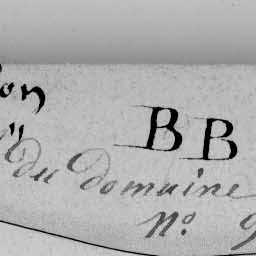 on
" BB
du domaine
N° 9